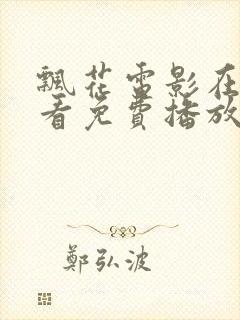 飄花雷影在
看免費播放
鄭弘波